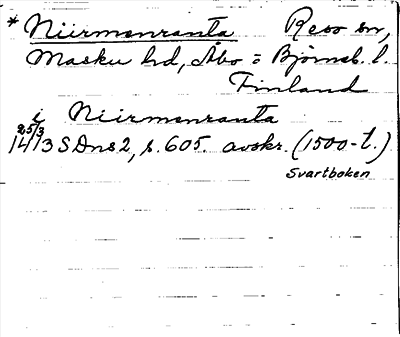 * Niirmenranta Reso sn,
Masku hd, Åbo = Björneb. l.
Finland
i Niirmenranta
14 25/3 13 SDns 2, s. 605. avskr. (1500-t.)
Svartboken